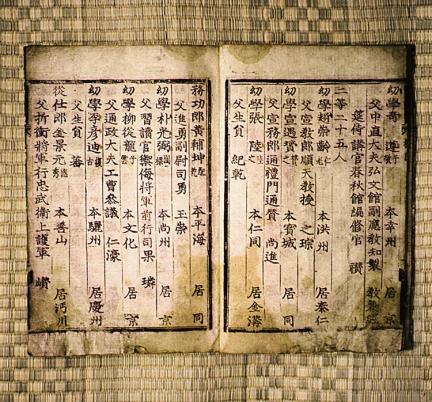 幼學奇遵 本幸州 居京
父中直大夫弘文館副應敎知製敎兼經
筵侍講官春秋館編修官 禶
二等二十五人
幼學趙崇齡 本洪州 居泰仁
父宣敎郎順天敎授 之琮
幼學宣遇贊 本寶城 居同
父宣務郎通禮門通贊 尚進
幼學張 本仁同 居金溝
父生員 紀乾
務功郎黃輔坤 本平海 居同
父進勇副尉司勇 玉崇
幼學朴光弼 本尚州 居京
父習讀官禦侮將軍前行司果 璘
幼學柳從龍 本文化 居京
父通政大夫工曹參議 仁濠
幼學李彦迪 本驪州 居慶州
父生員 蕃
從仕郎金景元 本善山 居沔川
父折衝將軍行忠武衛上護軍